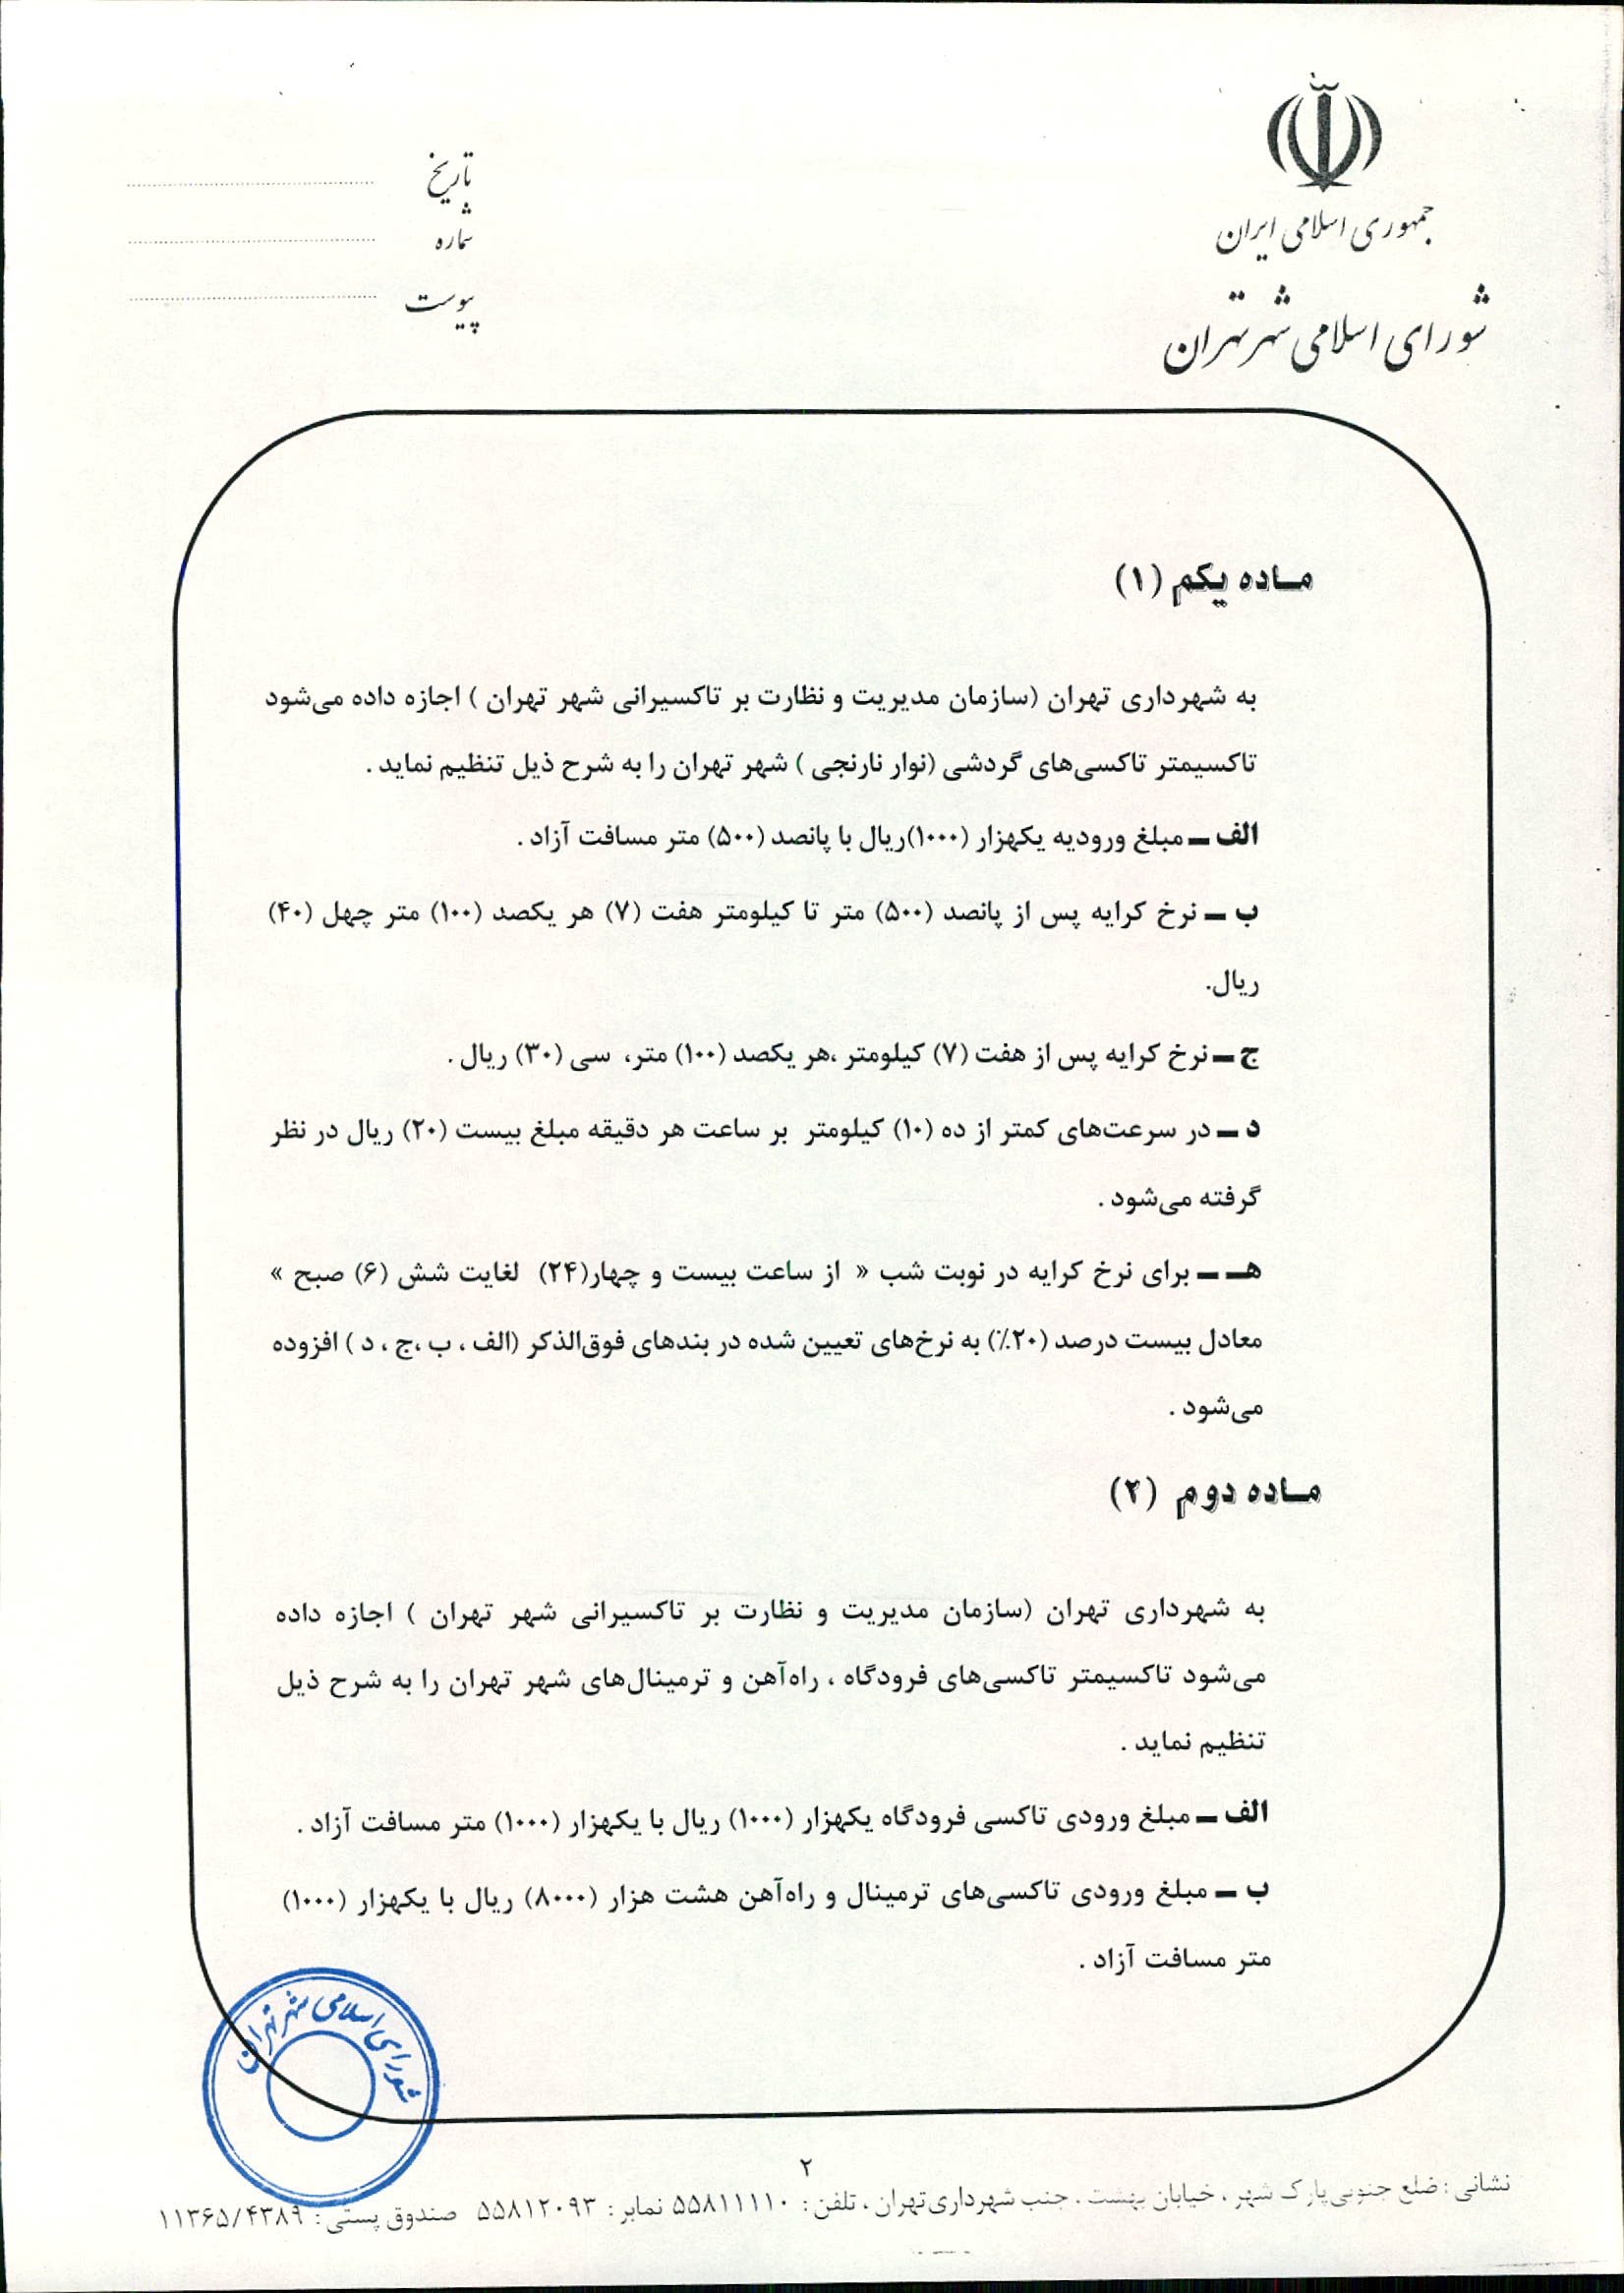 جمهوری اسلامی ایران
شورای اسلامی شهر تهران
تاریخ
شماره
پیوست
ماده یکم (۱)
به شهرداری تهران (سازمان مدیریت و نظارت بر تاکسیرانی شهر تهران ) اجازه داده می‌شود
تاکسیمتر تاکسی‌های گردشی (نوار نارنجی ) شهر تهران را به شرح ذیل تنظیم نماید .
الف ـ مبلغ ورودیه یکهزار (۱۰۰۰)ریال با پانصد (۵۰۰) متر مسافت آزاد .
ب ـ نرخ کرایه پس از پانصد (۵۰۰) متر تا کیلومتر هفت (۷) هر یکصد (۱۰۰) متر چهل (۴۰)
ریال.
ج ـ نرخ کرایه پس از هفت (۷) کیلومتر ،هر یکصد (۱۰۰) متر، سی (۳۰) ریال .
د ـ در سرعت‌های کمتر از ده (۱۰) کیلومتر بر ساعت هر دقیقه مبلغ بیست (۲۰) ریال در نظر
گرفته می‌شود .
هـ ـ برای نرخ کرایه در نوبت شب « از ساعت بیست و چهار(۲۴) لغایت شش (۶) صبح »
معادل بیست درصد (۲۰٪) به نرخ‌های تعیین شده در بندهای فوق‌الذکر (الف ، ب ،ج ، د ) افزوده
می‌شود .
ماده دوم (۲)
به شهرداری تهران (سازمان مدیریت و نظارت بر تاکسیرانی شهر تهران ) اجازه داده
می‌شود تاکسیمتر تاکسی‌های فرودگاه ، راه‌آهن و ترمینال‌های شهر تهران را به شرح ذیل
تنظیم نماید .
الف ـ مبلغ ورودی تاکسی فرودگاه یکهزار (۱۰۰۰) ریال با یکهزار (۱۰۰۰) متر مسافت آزاد .
ب ـ مبلغ ورودی تاکسی‌های ترمینال و راه‌آهن هشت هزار (۸۰۰۰) ریال با یکهزار (۱۰۰۰)
متر مسافت آزاد .
شورای اسلامی شهر تهران
۲
نشانی : ضلع جنوبی پارک شهر ، خیابان بهشت ، جنب شهرداری تهران ، تلفن : ۵۵۸۱۱۱۱۰ نمابر : ۵۵۸۱۲۰۹۳ صندوق پستی : ۱۱۳۶۵/۴۳۸۹